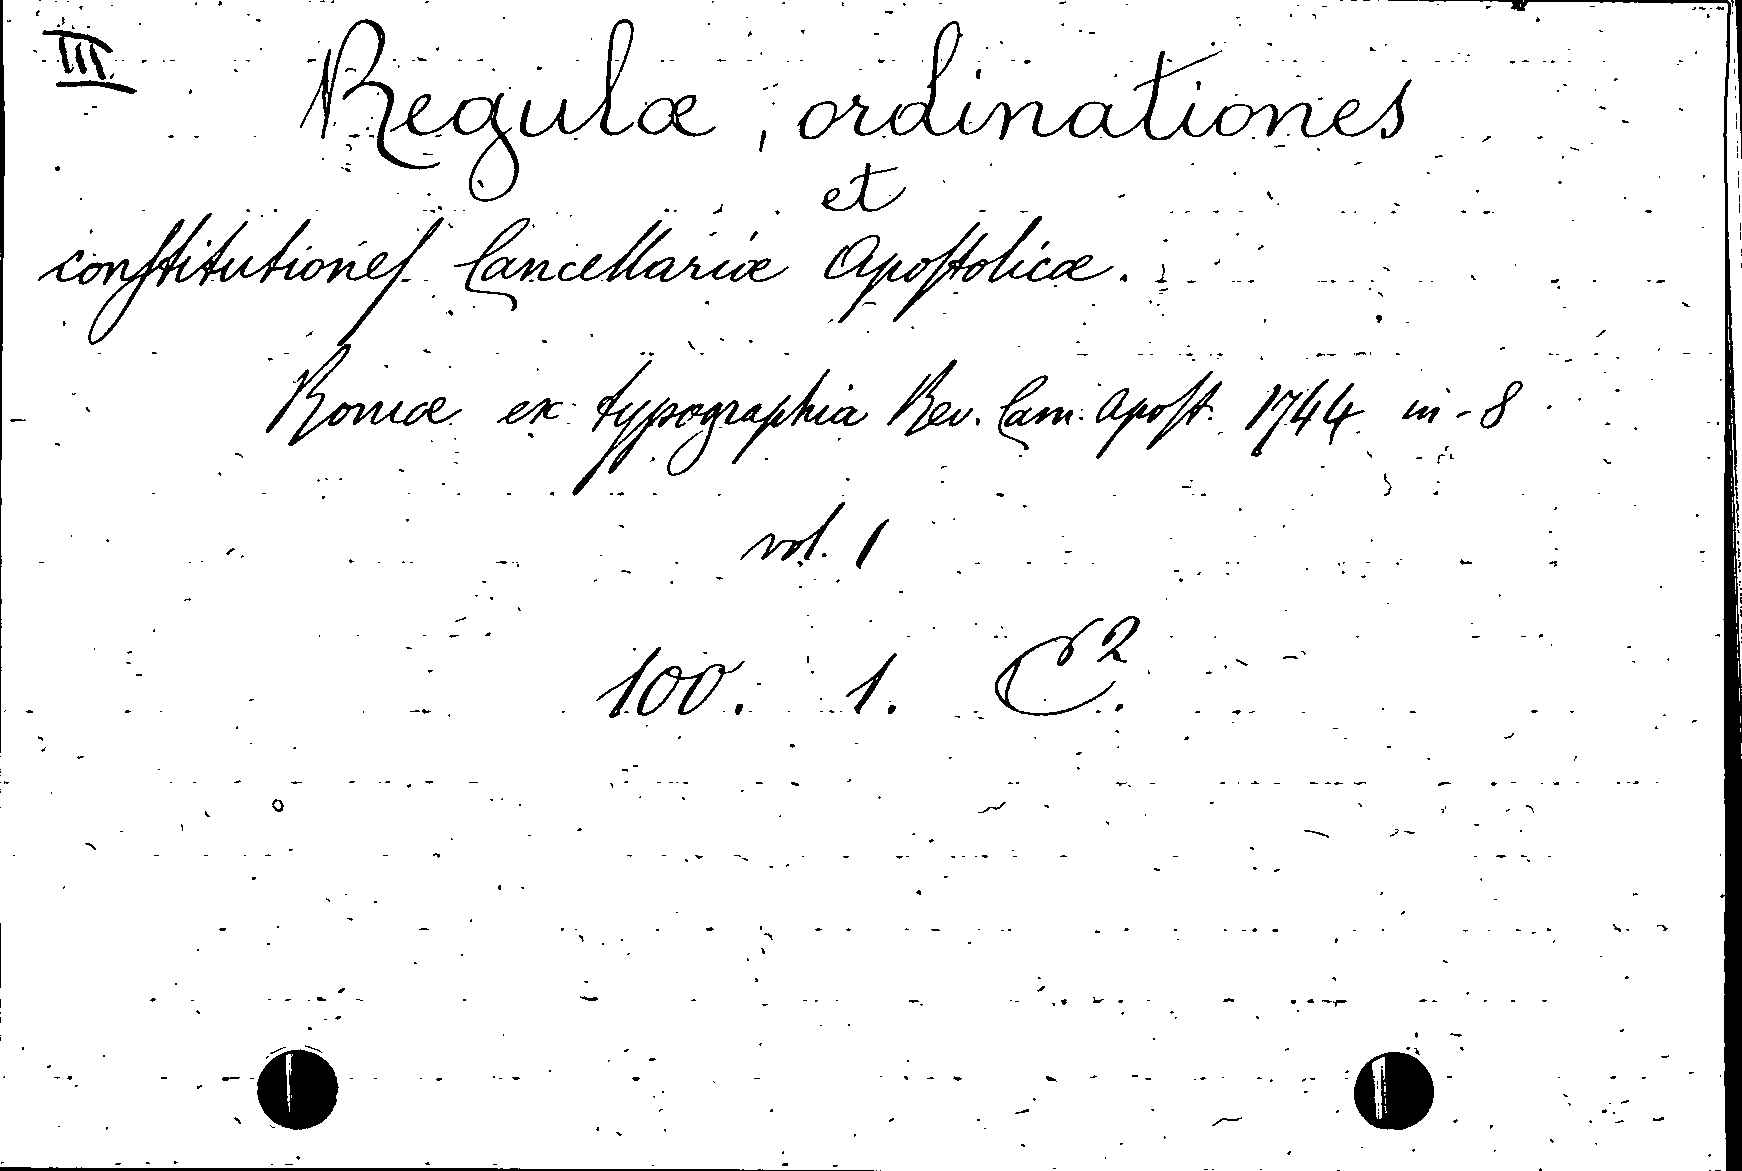 III
Regulæ, ordinationes
et
conſtitutioneſ Cancellariæ Apoſtolicæ.
Romæ ex typographia Rev. Cam. Apoſt. 1744 in-8
vol. 1
100. 1. C².